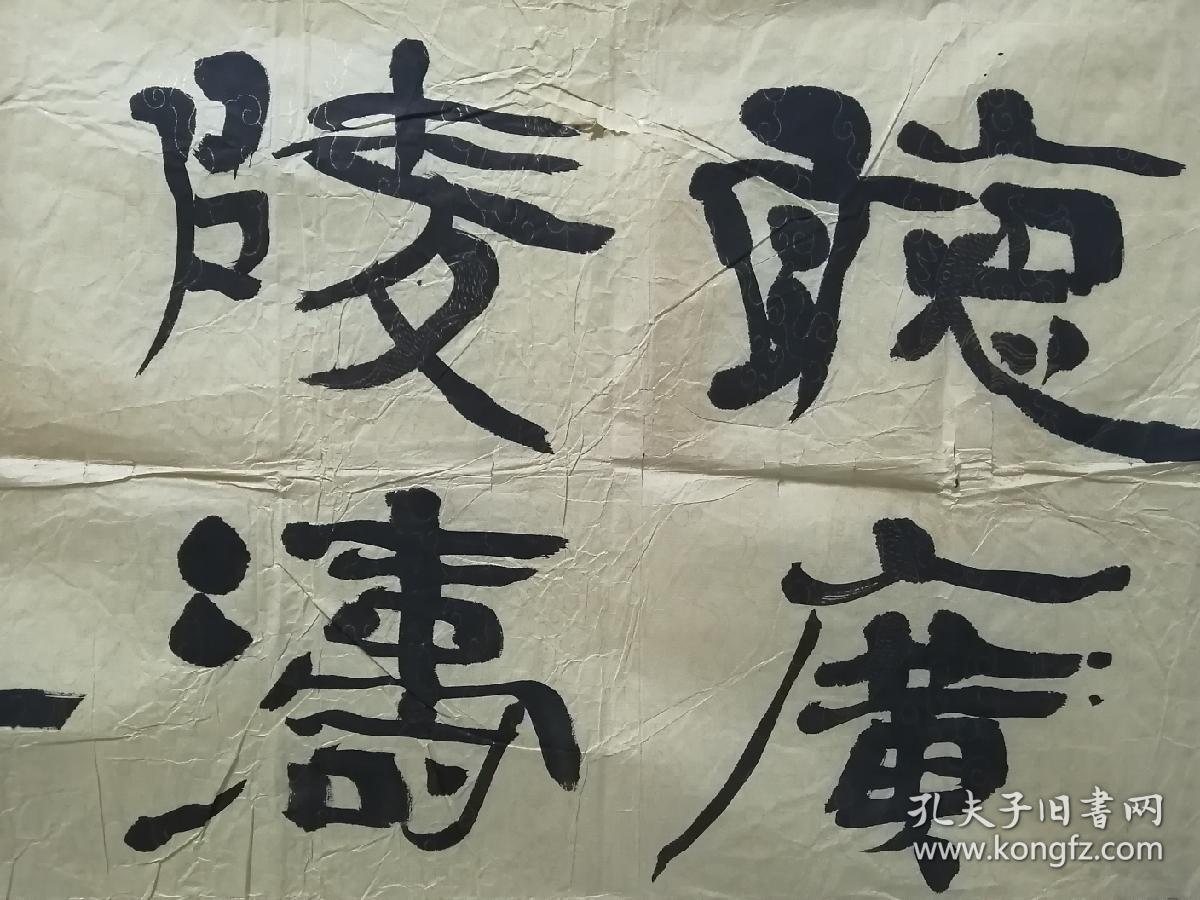 聽廣
陵濤
一
孔夫子旧書网
www.kongfz.com